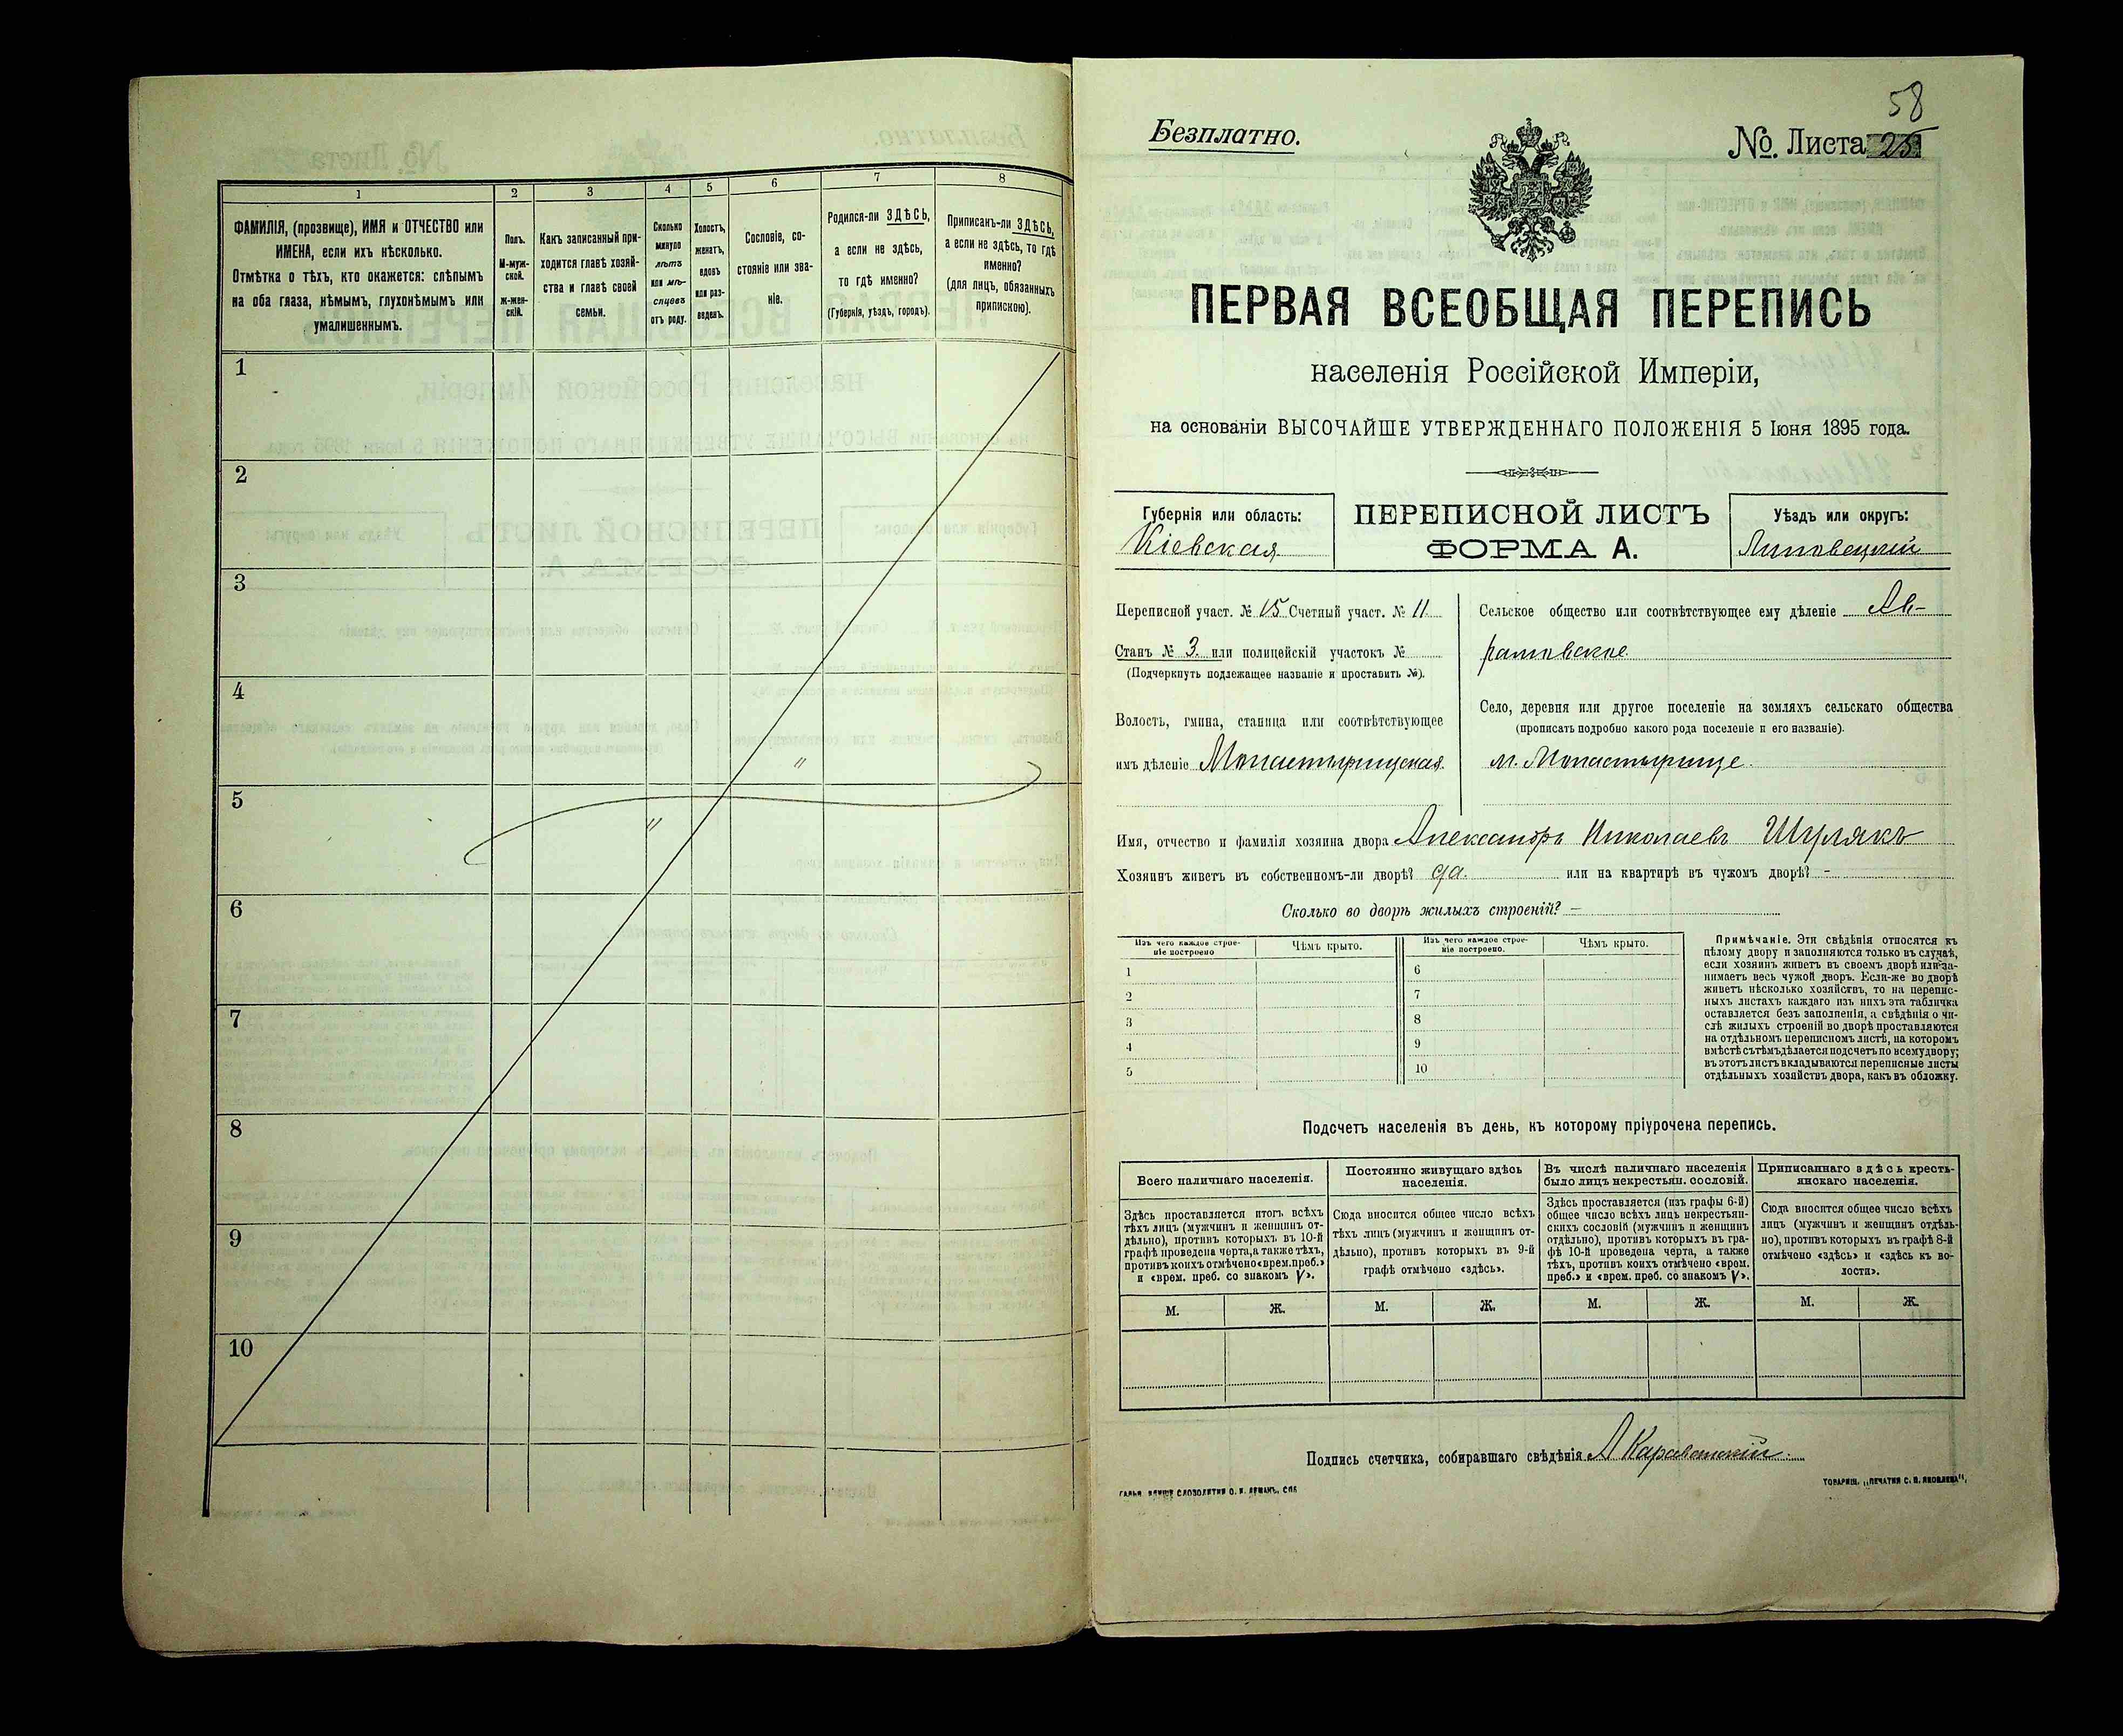 1 2 3 4 5 6 7 8
ФАМИЛІЯ, (прозвище), ИМЯ и ОТЧЕСТВО или
ИМЕНА, если ихъ нѣсколько.
Отмѣтка о тѣхъ, кто окажется: слѣпымъ
на оба глаза, нѣмымъ, глухонѣмымъ или
умалишеннымъ.
Полъ.
М-муж-
ской.
ж-жен-
скій.
Какъ записанный при-
ходится главѣ хозяй-
ства и главѣ своей
семьи.
Сколько
минуло
лѣтъ
или мѣ-
сяцевъ
отъ роду.
Холостъ,
женатъ,
вдовъ
или раз-
веденъ.
Сословіе, со-
стояніе или зва-
ніе.
Родился-ли ЗДѢСЬ,
а если не здѣсь,
то гдѣ именно?
(Губернія, уѣздъ, городъ).
Приписанъ-ли ЗДѢСЬ,
а если не здѣсь, то гдѣ
именно?
(для лицъ, обязанныхъ
припискою).
1
2
3
4
"
5
"
6
7
8
9
10
58
Безплатно.
№. Листа 25
ПЕРВАЯ ВСЕОБЩАЯ ПЕРЕПИСЬ
населенія Россійской Имперіи,
на основаніи ВЫСОЧАЙШЕ УТВЕРЖДЕННАГО ПОЛОЖЕНІЯ 5 Іюня 1895 года.
Губернія или область:
Кіевская
ПЕРЕПИСНОЙ ЛИСТЪ
ФОРМА А.
Уѣздъ или округъ:
Липовецкій
Переписной участ. № 15 Счетный участ. № 11
Станъ № 3. или полицейскій участокъ №
(Подчеркнуть подлежащее названіе и проставить №).
Волость, гмина, станица или соотвѣтствующее
имъ дѣленіе Монастырищская.
Сельское общество или соотвѣтствующее ему дѣленіе Ав-
ратовское
Село, деревня или другое поселеніе на земляхъ сельскаго общества
(прописать подробно какого рода поселеніе и его названіе).
м. Монастырище.
Имя, отчество и фамилія хозяина двора Александръ Николаевъ Шулякъ
Хозяинъ живетъ въ собственномъ-ли дворѣ? да. или на квартирѣ въ чужомъ дворѣ? -
Сколько во дворѣ жилыхъ строеній? —
Изъ чего каждое строе-
ніе построено
Чѣмъ крыто.
Изъ чего каждое строе-
ніе построено.
Чѣмъ крыто.
1 6
2 7
3 8
4 9
5 10
Примѣчаніе. Эти свѣдѣнія относятся къ
цѣлому двору и заполняются только въ случаѣ,
если хозяинъ живетъ въ своемъ дворѣ или за-
нимаетъ весь чужой дворъ. Если-же во дворѣ
живетъ нѣсколько хозяйствъ, то на перепис-
ныхъ листахъ каждаго изъ нихъ эта табличка
оставляется безъ заполненія, а свѣдѣнія о чи-
слѣ жилыхъ строеній во дворѣ проставляются
на отдѣльномъ переписномъ листѣ, на которомъ
вмѣстѣ съ тѣмъ дѣлается подсчетъ по всему двору;
въ этотъ листъ вкладываются переписные листы
отдѣльныхъ хозяйствъ двора, какъ въ обложку.
Подсчетъ населенія въ день, къ которому пріурочена перепись.
Всего наличнаго населенія.
Здѣсь проставляется итогъ всѣхъ
тѣхъ лицъ (мужчинъ и женщинъ от-
дѣльно), противъ которыхъ въ 10-й
графѣ проведена черта, а также тѣхъ,
противъ коихъ отмѣчено «врем. преб.»
и «врем. преб. со знакомъ V».
Постоянно живущаго здѣсь
населенія.
Сюда вносится общее число всѣхъ
тѣхъ лицъ (мужчинъ и женщинъ от-
дѣльно), противъ которыхъ въ 9-й
графѣ отмѣчено «здѣсь».
Въ числѣ наличнаго населенія
было лицъ некрестьян. сословій.
Здѣсь проставляется (изъ графы 6-й)
общее число всѣхъ лицъ некрестьян-
скихъ сословій (мужчинъ и женщинъ
отдѣльно), противъ которыхъ въ гра-
фѣ 10-й проведена черта, а также
тѣхъ, противъ коихъ отмѣчено «врем.
преб.» и «врем. преб. со знакомъ V».
Приписаннаго здѣсь кресть-
янскаго населенія.
Сюда вносится общее число всѣхъ
лицъ (мужчинъ и женщинъ отдѣль-
но), противъ которыхъ въ графѣ 8-й
отмѣчено «здѣсь» и «здѣсь къ во-
лости».
М. Ж. М. Ж. М. Ж. М. Ж.
Подпись счетчика, собиравшаго свѣдѣнія А
ТОВАРИЩ. „ПЕЧАТНЯ С. П. ЯКОВЛЕВА".